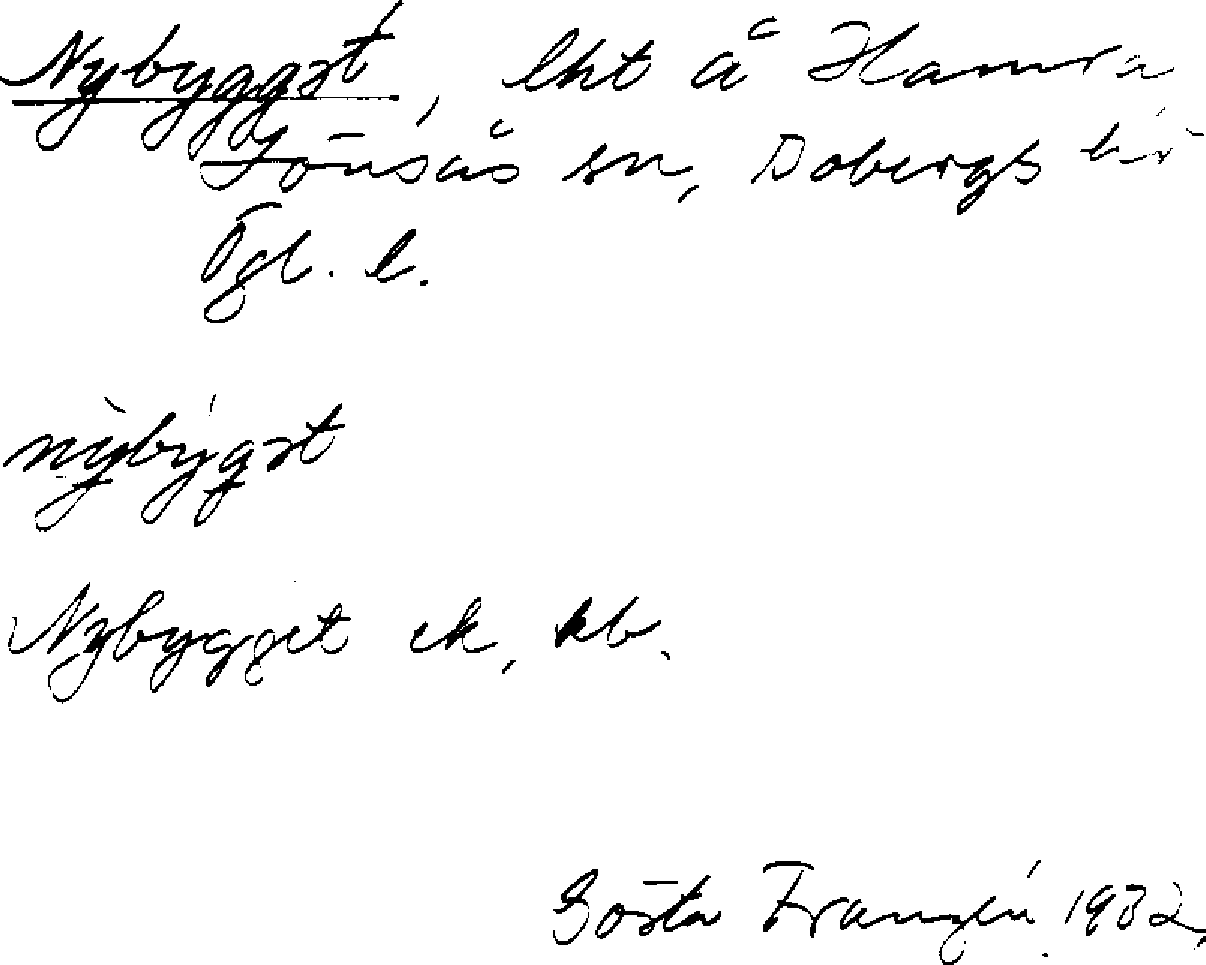 Nybyggət, lht å Hamra
Lönsås sn, Bobergs hd
Ögl. l.
nỳbýgət
Nybygget ek, kb.
Gösta Franzén 1932.